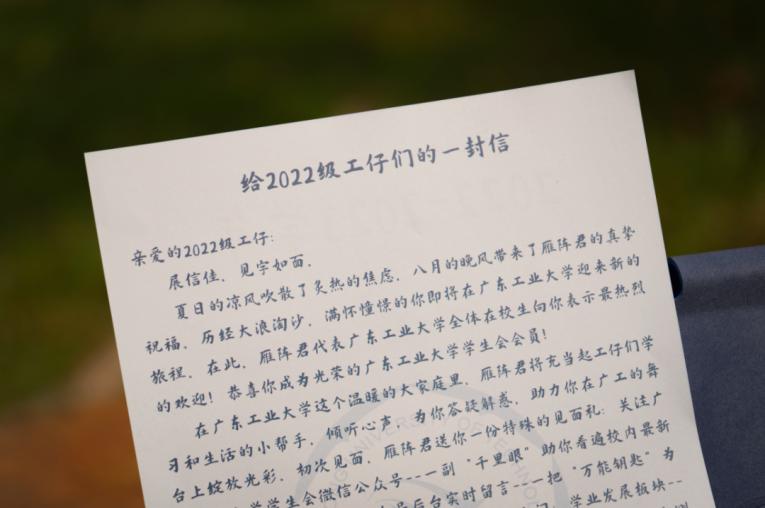 给2022级工仔们的一封信
亲爱的2022级工仔：
展信佳，见字如面。
夏日的凉风吹散了炙热的焦虑，八月的晚风带来了雁阵君的真挚
祝福。历经大浪淘沙，满怀憧憬的你即将在广东工业大学迎来新的
旅程，在此，雁阵君代表广东工业大学全体在校生向你表示最热烈
的欢迎！恭喜你成为光荣的广东工业大学学生会会员！
在广东工业大学这个温暖的大家庭里，雁阵君将充当起工仔们学
习和生活的小帮手，倾听心声，为你答疑解惑，助力你在广工的舞
台上绽放光彩。初次见面，雁阵君送你一份特殊的见面礼：关注广
学学生会微信公众号---一副“千里眼”助你看遍校内最新
号后台实时留言---一把“万能钥匙”为
学业发展板块--
UNIVERSITY OF TECHNO